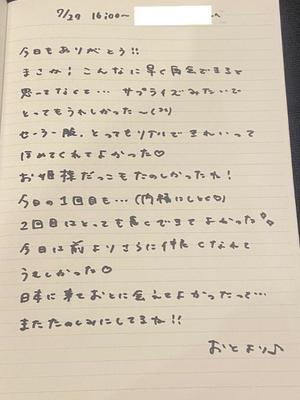 7/27 16:00〜
今日もありがとう!!
まさか!こんなに早く再会できると
思ってなくて... サプライズみたいで
とってもうれしかった〜(>_<)
セーラー服、とってもリアルできれいって
ほめてくれてよかった♡
お姫様だっこもたのしかったね!
今日の1回目も...(内緒にしとく♡)
2回目はとっても長くできてよかった
今日は前よりさらに仲良くなれて
うれしかった♡
日本に来ておとに会えてよかったって...
またたのしみにしてるね!!
おとより♪